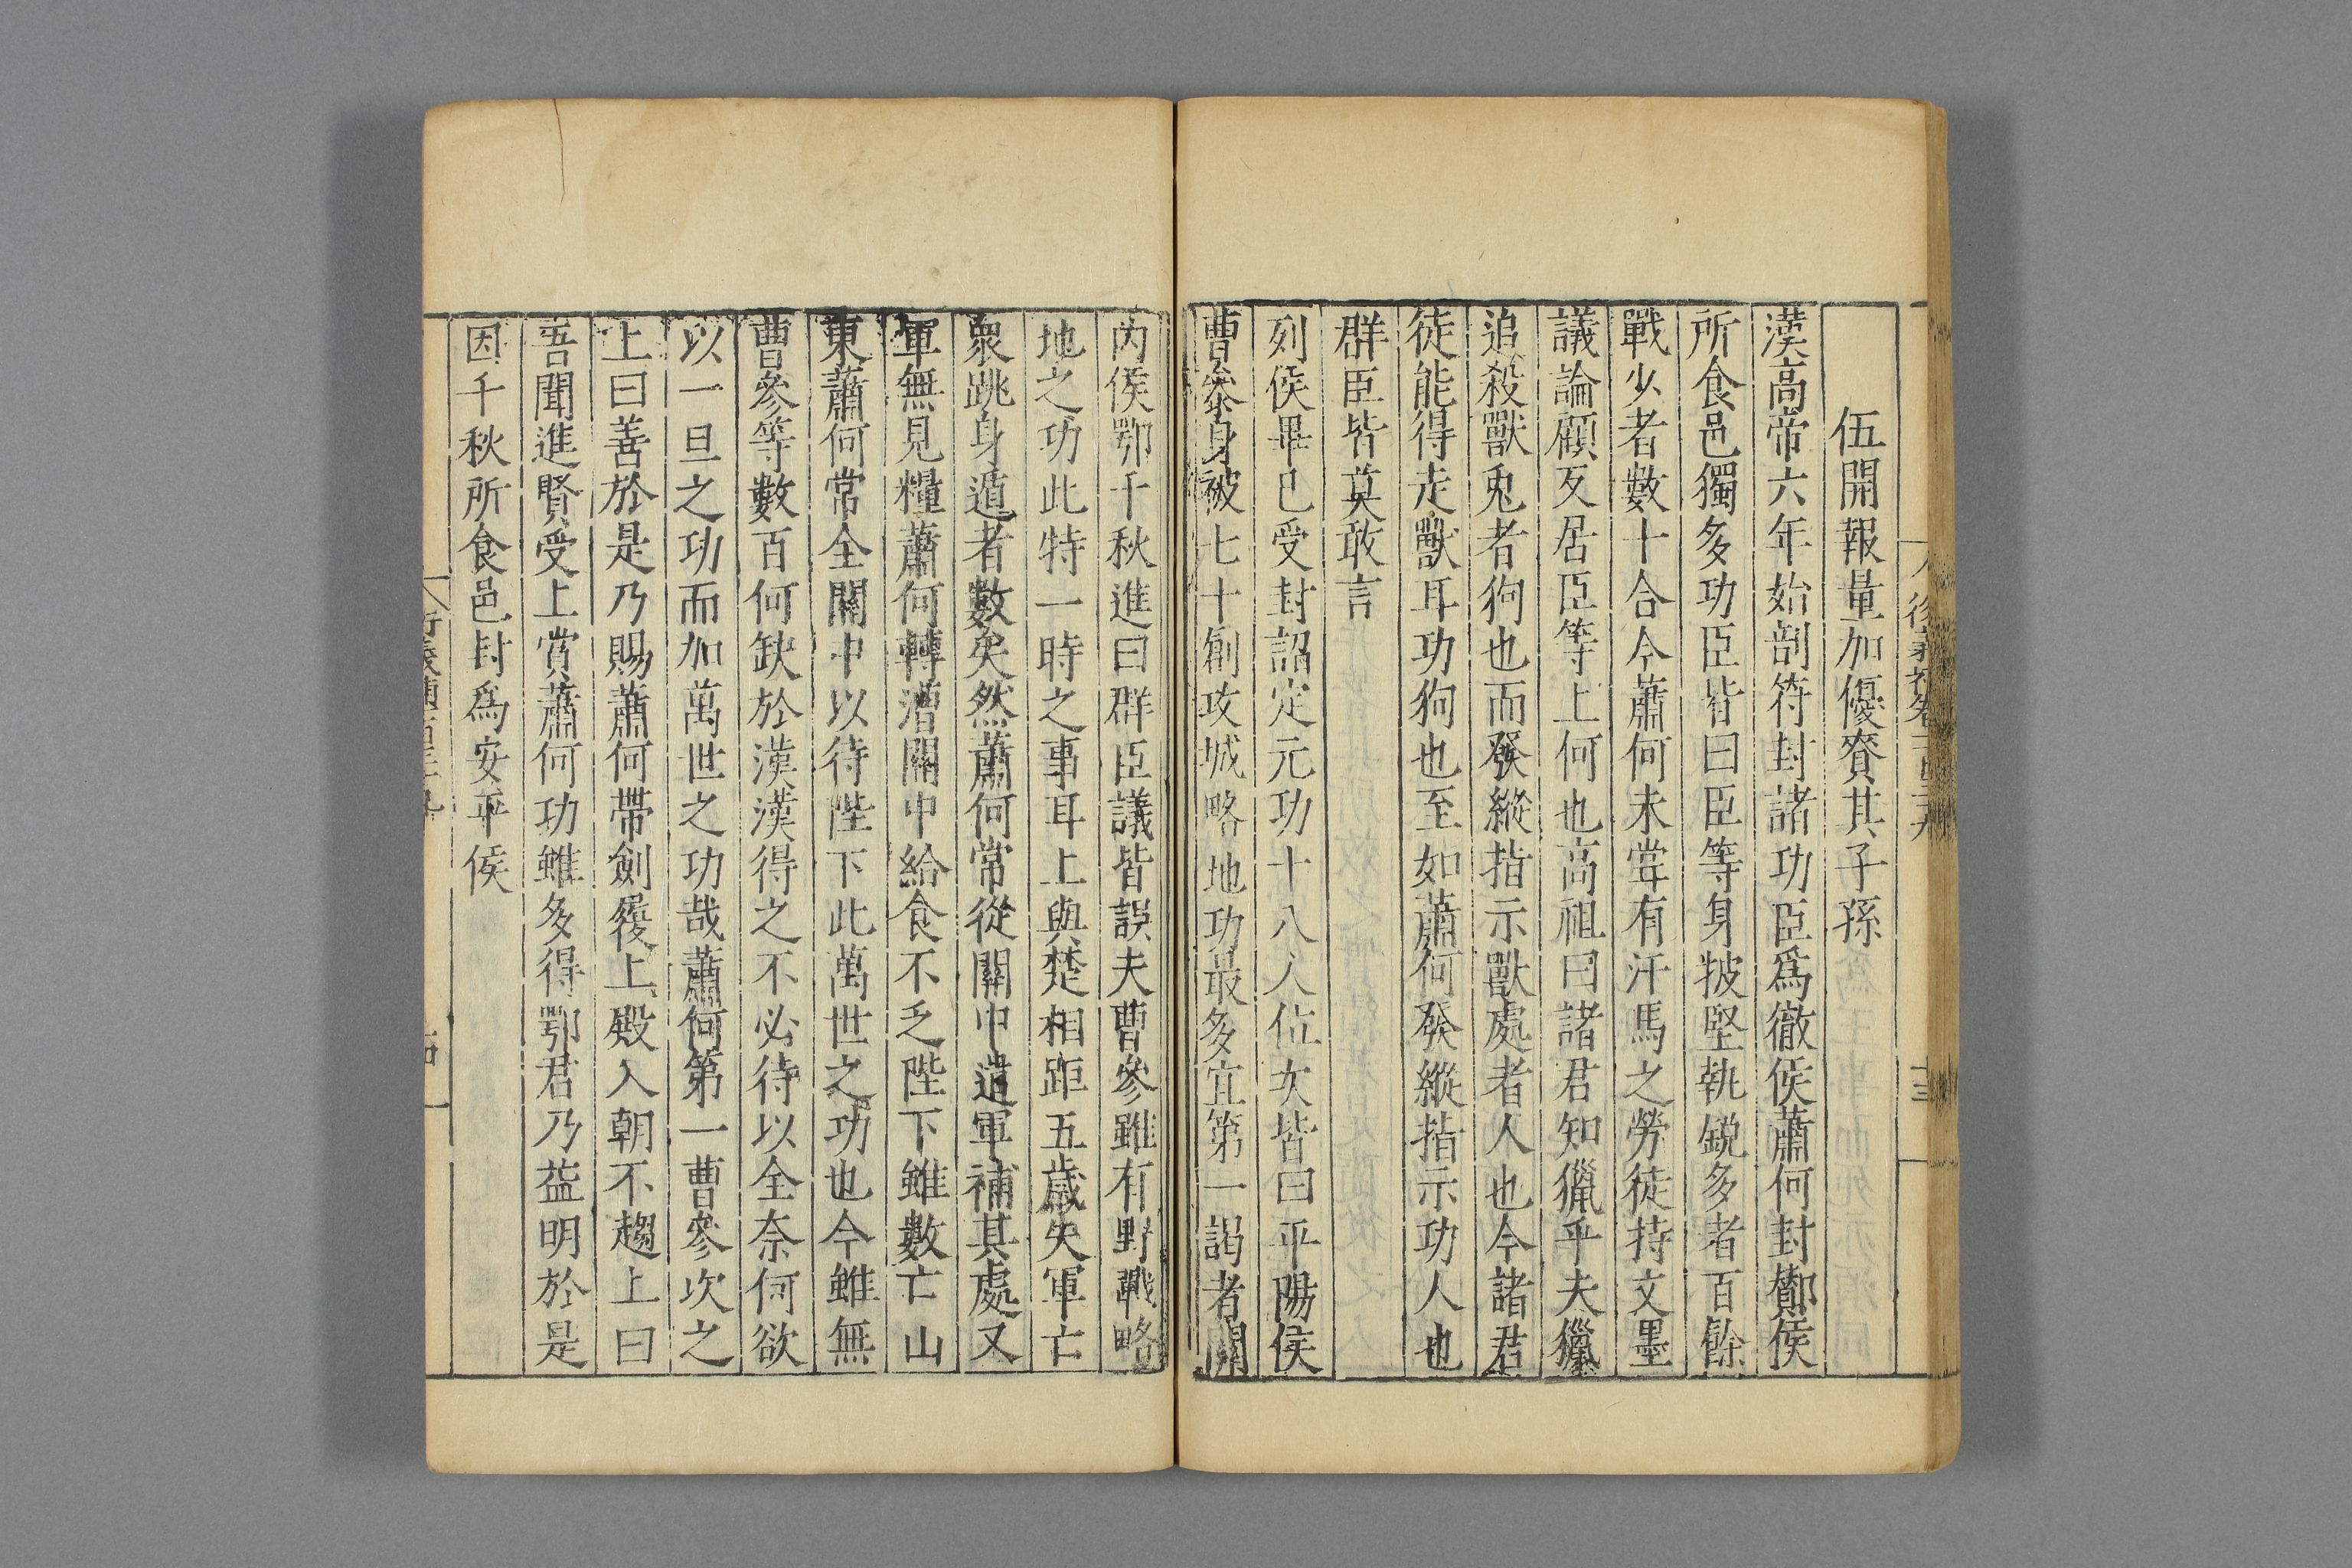 伍開報量加優賚其子孫
漢高帝六年始剖符封諸功臣爲徹侯蕭何封酇侯
所食邑獨多功臣皆曰臣等身被堅執銳多者百餘
戰少者數十合今蕭何未嘗有汗馬之勞徒持文墨
議論顧反居臣等上何也高祖曰諸君知獵乎夫獵
追殺獸兎者狗也而發縱指示獸處者人也今諸君
徒能得走獸耳功狗也至如蕭何發縱指示功人也
群臣皆莫敢言
列侯畢已受封詔定元功十八人位次皆曰平陽侯
曹參身被七十創攻城略地功最多宜第一謁者關
内侯鄂千秋進曰群臣議皆誤夫曹參雖有野戰略
地之功此特一時之事耳上與楚相距五歲失軍亡
衆跳身遁者數矣然蕭何常從關中遣軍補其處又
軍無見糧蕭何轉漕關中給食不乏陛下雖數亡山
東蕭何常全關中以待陛下此萬世之功也今雖無
曹參等數百何缺於漢漢得之不必待以全奈何欲
以一旦之功而加萬世之功哉蕭何第一曹參次之
上曰善於是乃賜蕭何帶劍履上殿入朝不趨上曰
吾聞進賢受上賞蕭何功雖多得鄂君乃益明於是
因千秋所食邑封爲安平侯